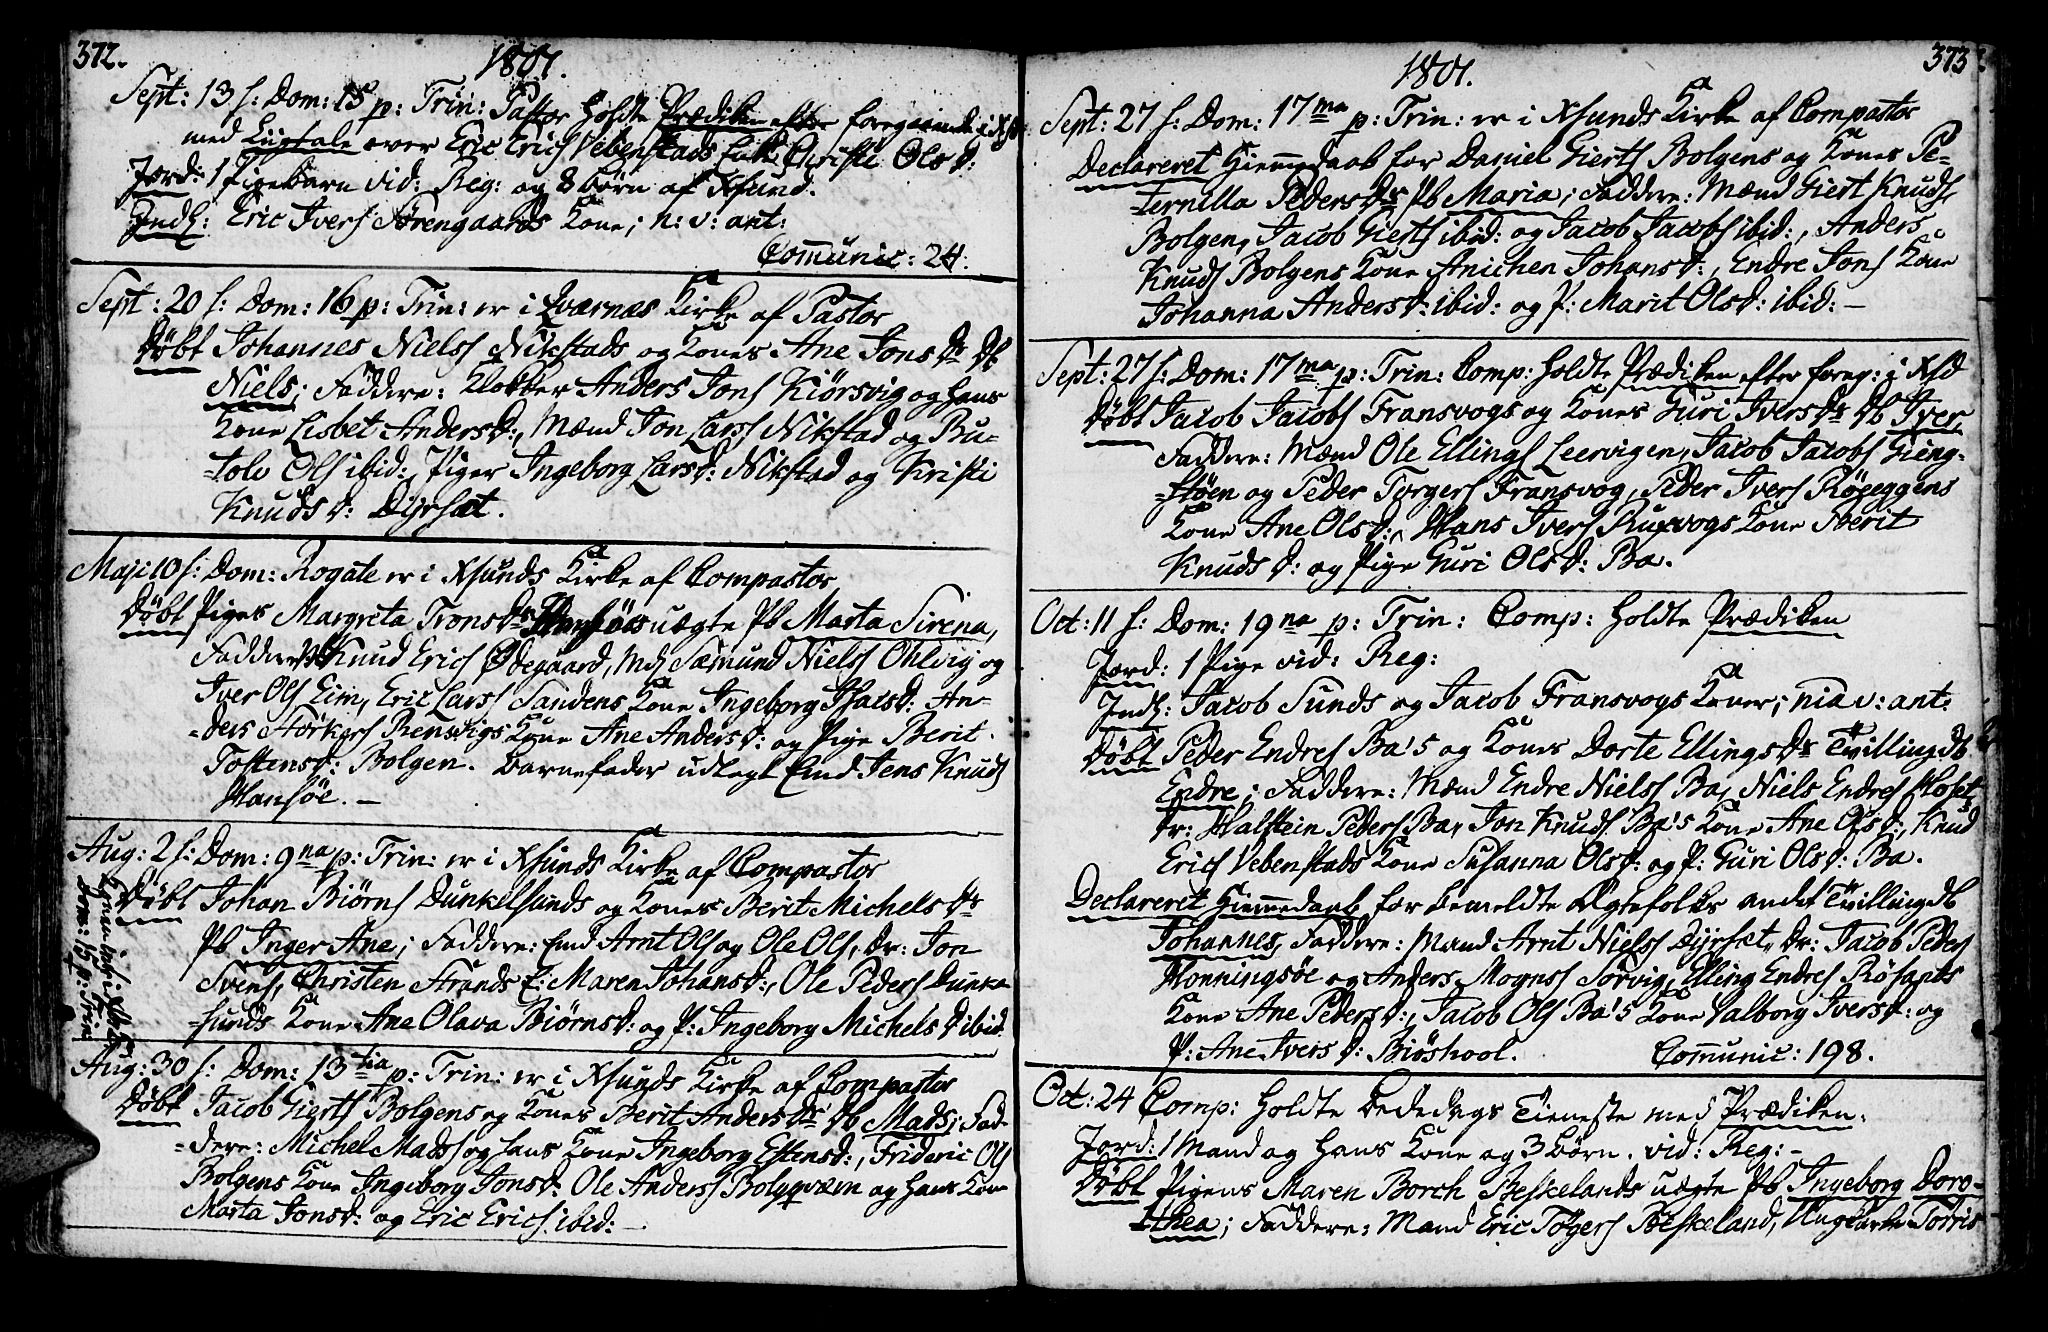 372.
1801.
Sept: 13 f: Dom: 15 p: Trin: Pastor holdte Prædiken efter foregaaende i Xs
med Liigtale over Eric Erics Vebenstads Christi Ols D:
Jord: 1 Pigebarn vid: Reg: og 8 børn af Xsund.
Indl: Eric Ivers Strengaards Kone; n: v: ant:
Comunic: 24:
Sept: 20 f: Dom: 16 p: Trin: er i Qværnæs Kirke af Pastor
Døbt Johannes Nielss Nikstads og Kones Ane Jons Ds Db
Niels; Faddere: Klokker Anders Jons Kiørsvig og hans
Kone Lisbet Anders D:, Mænd Jon Larss Nikstad og Bu-
-tolv Ols ibid:, Piger Ingeborg Lars D: Nikstad og Kristi
Knuds D: Dyrsæt.
Maji 10 f: Dom: Rogate er i Xsunds Kirke af Compastor
Døbt Piges Margreta Trons Ds Hansøes uægte Pb Marta Sirena,
Faddere: Knud Erics Ødegaard, Md Sæmund Nielss Ohlvig og
Iver Ols Eim, Eric Larss Sandens Kone Ingeborg Isacs D: An-
-ders Størkers Rensvigs Kone Ane Anders D: og Pige Berit
Tostens D: Bolgen. Barnefader udlagt Emd Jens Knuds
Hansøe. -
Aug: 2 f: Dom: 9na p: Trin: er i Xsunds Kirke af Compastor
Døbt Johan Biørns Dunkelsunds og Kones Berit Michels Ds
Pb Inger Ane; Faddere: Emd Arnt Ols og Ole Ols, Dr: Jon
Svens, Christen Strands E: Maren Johans D:, Ole Peders Dunke-
-sunds Kone Ane Olava Biørns D: og P: Ingeborg Michels D ibid.
Kone Dom: 15 p: Trin:
Aug: 30 f: Dom: 13tia p: Trin: er i Xsunds Kirke af Compastor
Døbt Jacob Gierts Bolgens og Kones Berit Anders Ds Db Mads; Fad-
-dere: Michel Madss og hans Kone Ingeborg Estens D:, Frideric Ols
Bolgens Kone Ingeborg Jons D: Ole Anderss Bolgqværn og hans Kone
Marta Jons D: og Eric Erics ibid: -
373.
1801.
Sept: 27 f: Dom: 17ma p: Trin: er i Xsunds Kirke af Compastor
Declareret Hiemmedaab for Daniel Gierts Bolgens og Kones Pe-
-ternilla Peders Ds Pb Maria; Faddere: Mænd Giert Knuds
Bolgen, Jacob Gierts ibid: og Jacob Jacobs ibid:, Anders
Knuds Bolgens Kone Anichen Johans D:, Endre Jons Kone
Johanna Anders D: ibid: og P: Marit Ols D: ibid: -
Sept: 27 f: Dom: 17ma p: Trin: Comp: holdte Prædiken efter foreg: i Xsd
Døbt Jacob Jacobs Fransvogs og Kones Guri Ivers Ds Db Iver,
Faddere: Mænd Ole Ellings Leervigen, Jacob Jacobs Gieng-
-støen og Peder Torgers Fransvog, Peder Ivers Røgeggens
Kone Ane Ols D:, Hans Ivers Kone Berit
Knuds D: og Pige Guri Ols D: Ba.
Oct: 11 f: Dom: 19na p: Trin: Comp: holdte Prædiken
Jord: 1 Pige vid: Reg:
Indl: Jacob Sunds og Jacob Fransvogs Koner; v: ant:
Døbt Peder Endres Ba's og Kones Dorte Ellings Ds Tvilling Db
Endre; Faddere: Mænd Endre Nielss Ba, Niels Endres Moset,
Dr: Halstein Peders Ba, Jon Knuds Ba's Kone Ane Ols D:, Knud
Erics Vebenstads Kone Susanna Ols D: og P: Guri Ols D: Ba.
Declareret Hiemmedaab for bemeldte Ægtefolks andet Tvilling db
Johannes, Faddere: Mand Arnt Nielss Dyrsæt, Dr: Jacob Peders
Honningsøe og Anders Mognss Sørvig, Elling Endres Røsands
Kone Ane Peders D:, Jacob Ols Ba's Kone Valborg Ivers D: og
P: Ane Ivers D: Biøshool. Communic: 198.
Oct: 24 Comp: holdte Bededags Tieneste med Prædiken.
Jord: 1 Mand og hans Kone og 3 børn. vid: Reg: -
Døbt Pigens Maren Borch Beskelands uægte Pb Ingeborg Doro-
-thea; Faddere: Mand Eric Tøgers Beskeland, Ungkarle Torris